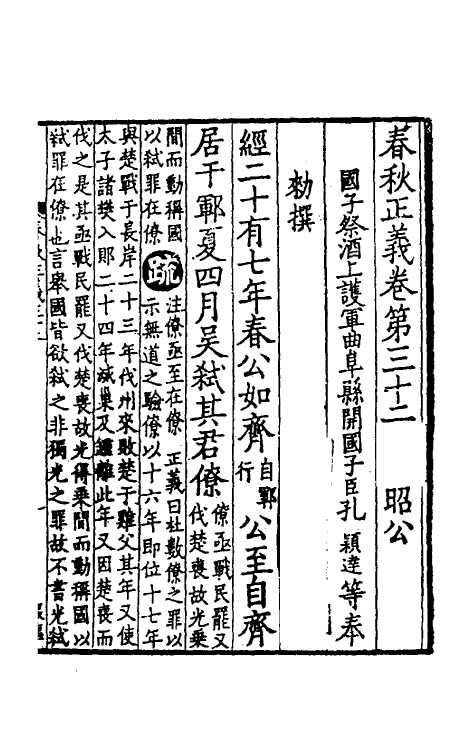 春秋正義卷第三十二　昭公
國子祭酒上護軍曲阜縣開國子臣孔穎達等奉
勑撰
經二十有七年春公如齊自鄆行公至自齊
居于鄆夏四月吳弑其君僚僚亟戰民罷又伐楚喪故光乘
間而動稱國以弑罪在僚疏注僚亟至在僚　正義曰杜數僚之罪以示無道之驗僚以十六年即位十七年
與楚戰于長岸二十三年伐州來敗楚于雞父其年又使
太子諸樊入郹二十四年滅巢及鍾離此年又因楚喪而
伐之是其亟戰民罷又伐楚喪故光得乘間而動稱國以
弑罪在僚也言舉國皆欲弑之非獨光之罪故不書光弑